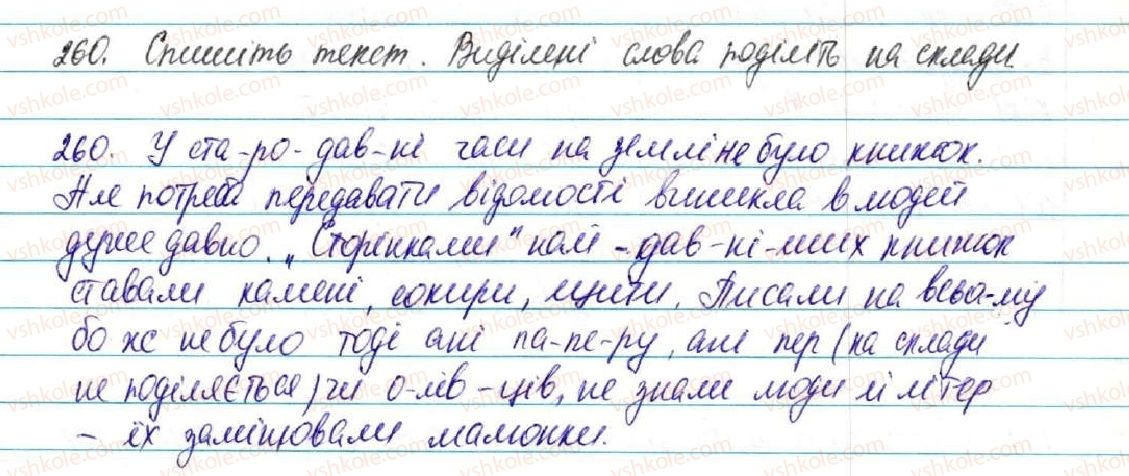 260. Спишіть текст. Виділені слова поділіть на склади.
260. У ста-ро-дав-ні часи на землі не було книжок.
Але потреба передавати відомості виникла в людей
дуже давно. „Сторінками" най-дав-ні-ших книжок
ставали камені, сокири, щити. Писали на всьо-му
бо ж не було тоді ані па-пе-ру, ані пер (на склади
не поділяється) чи о-лів-ців, не знали люди й літер
- їх заміщовали малюнки.